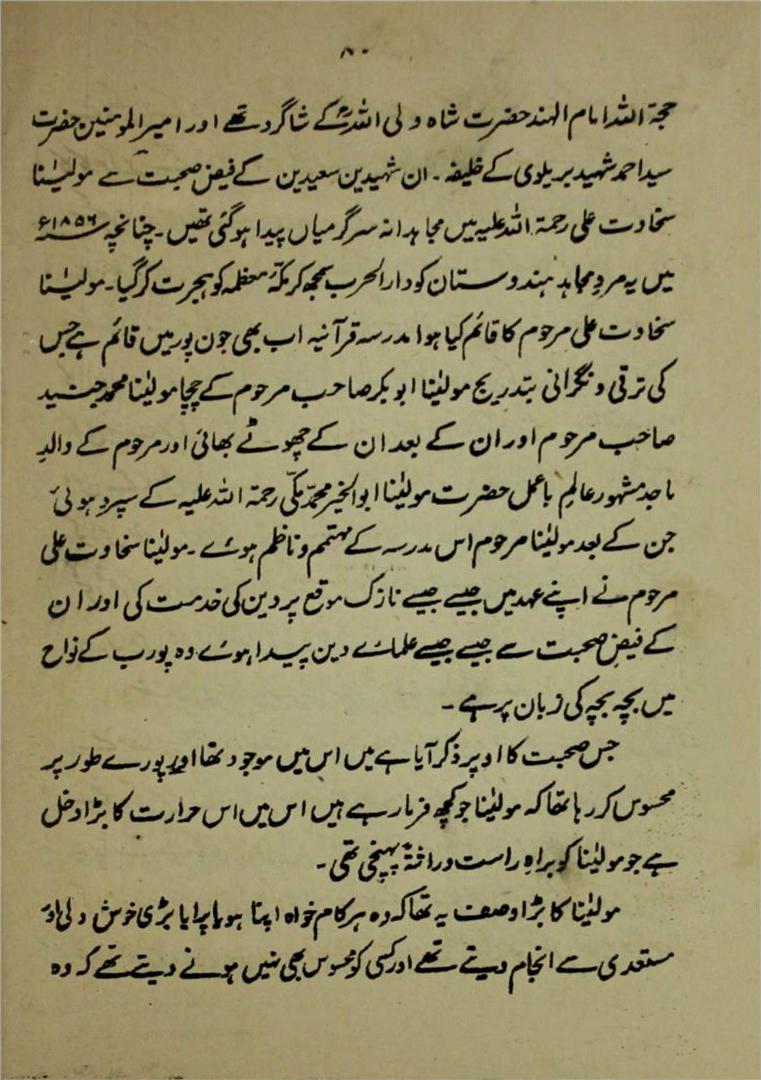 ۸۰
حجۃ اللہ امام الہند حضرت شاہ ولی اللہؒ کے شاگرد تھے اور امیر المومنین حضرت
سید احمد شہید بریلوی کے خلیفہ ۔ ان شہیدین سعیدین کے فیض صحبت سے مولیٰنا
سخاوت علی رحمۃ اللہ علیہ میں مجاہدانہ سرگرمیاں پیدا ہوگئی تھیں ۔ چنانچہ ۱۸۵۶ء
میں یہ مردِ مجاہد ہندوستان کو دار الحرب سمجھ کر مکہ معظمہ کو ہجرت کر گیا ۔ مولیٰنا
سخاوت علی مرحوم کا قائم کیا ہوا مدرسہ قرآنیہ اب بھی جون پور میں قائم ہے جس
کی ترقی و نگرانی بتدریج مولیٰنا ابوبکر صاحب مرحوم کے چچا مولیٰنا محمد جنید
صاحب مرحوم اور ان کے بعد ان کے چھوٹے بھائی اور مرحوم کے والدِ
ماجد مشہور عالمِ باعمل حضرت مولیٰنا ابوالخیر محمد مکّی رحمۃ اللہ علیہ کے سپرد ہوئی
جن کے بعد مولیٰنا مرحوم اس مدرسہ کے مہتمم و ناظم ہوئے ۔ مولیٰنا سخاوت علی
مرحوم نے اپنے عہد میں جیسے جیسے نازک موقع پر دین کی خدمت کی اور ان
کے فیضِ صحبت سے جیسے جیسے علمائے دین پیدا ہوئے وہ پورب کے نواح
میں بچہ بچہ کی زبان پر ہے ۔
جس صحبت کا اوپر ذکر آیا ہے میں اس میں موجود تھا اور پورے طور پر
محسوس کر رہا تھا کہ مولیٰنا جو کچھ فرما رہے ہیں اس میں اس حرارت کا بڑا دخل
ہے جو مولیٰنا کو براہِ راست وراثۃً پہنچی تھی ۔
مولیٰنا کا بڑا وصف یہ تھا کہ وہ ہر کام خواہ اپنا ہو یا پرایا بڑی خوش دلی اور
مستعدی سے انجام دیتے تھے اور کسی کو محسوس بھی نہیں ہونے دیتے تھے کہ وہ